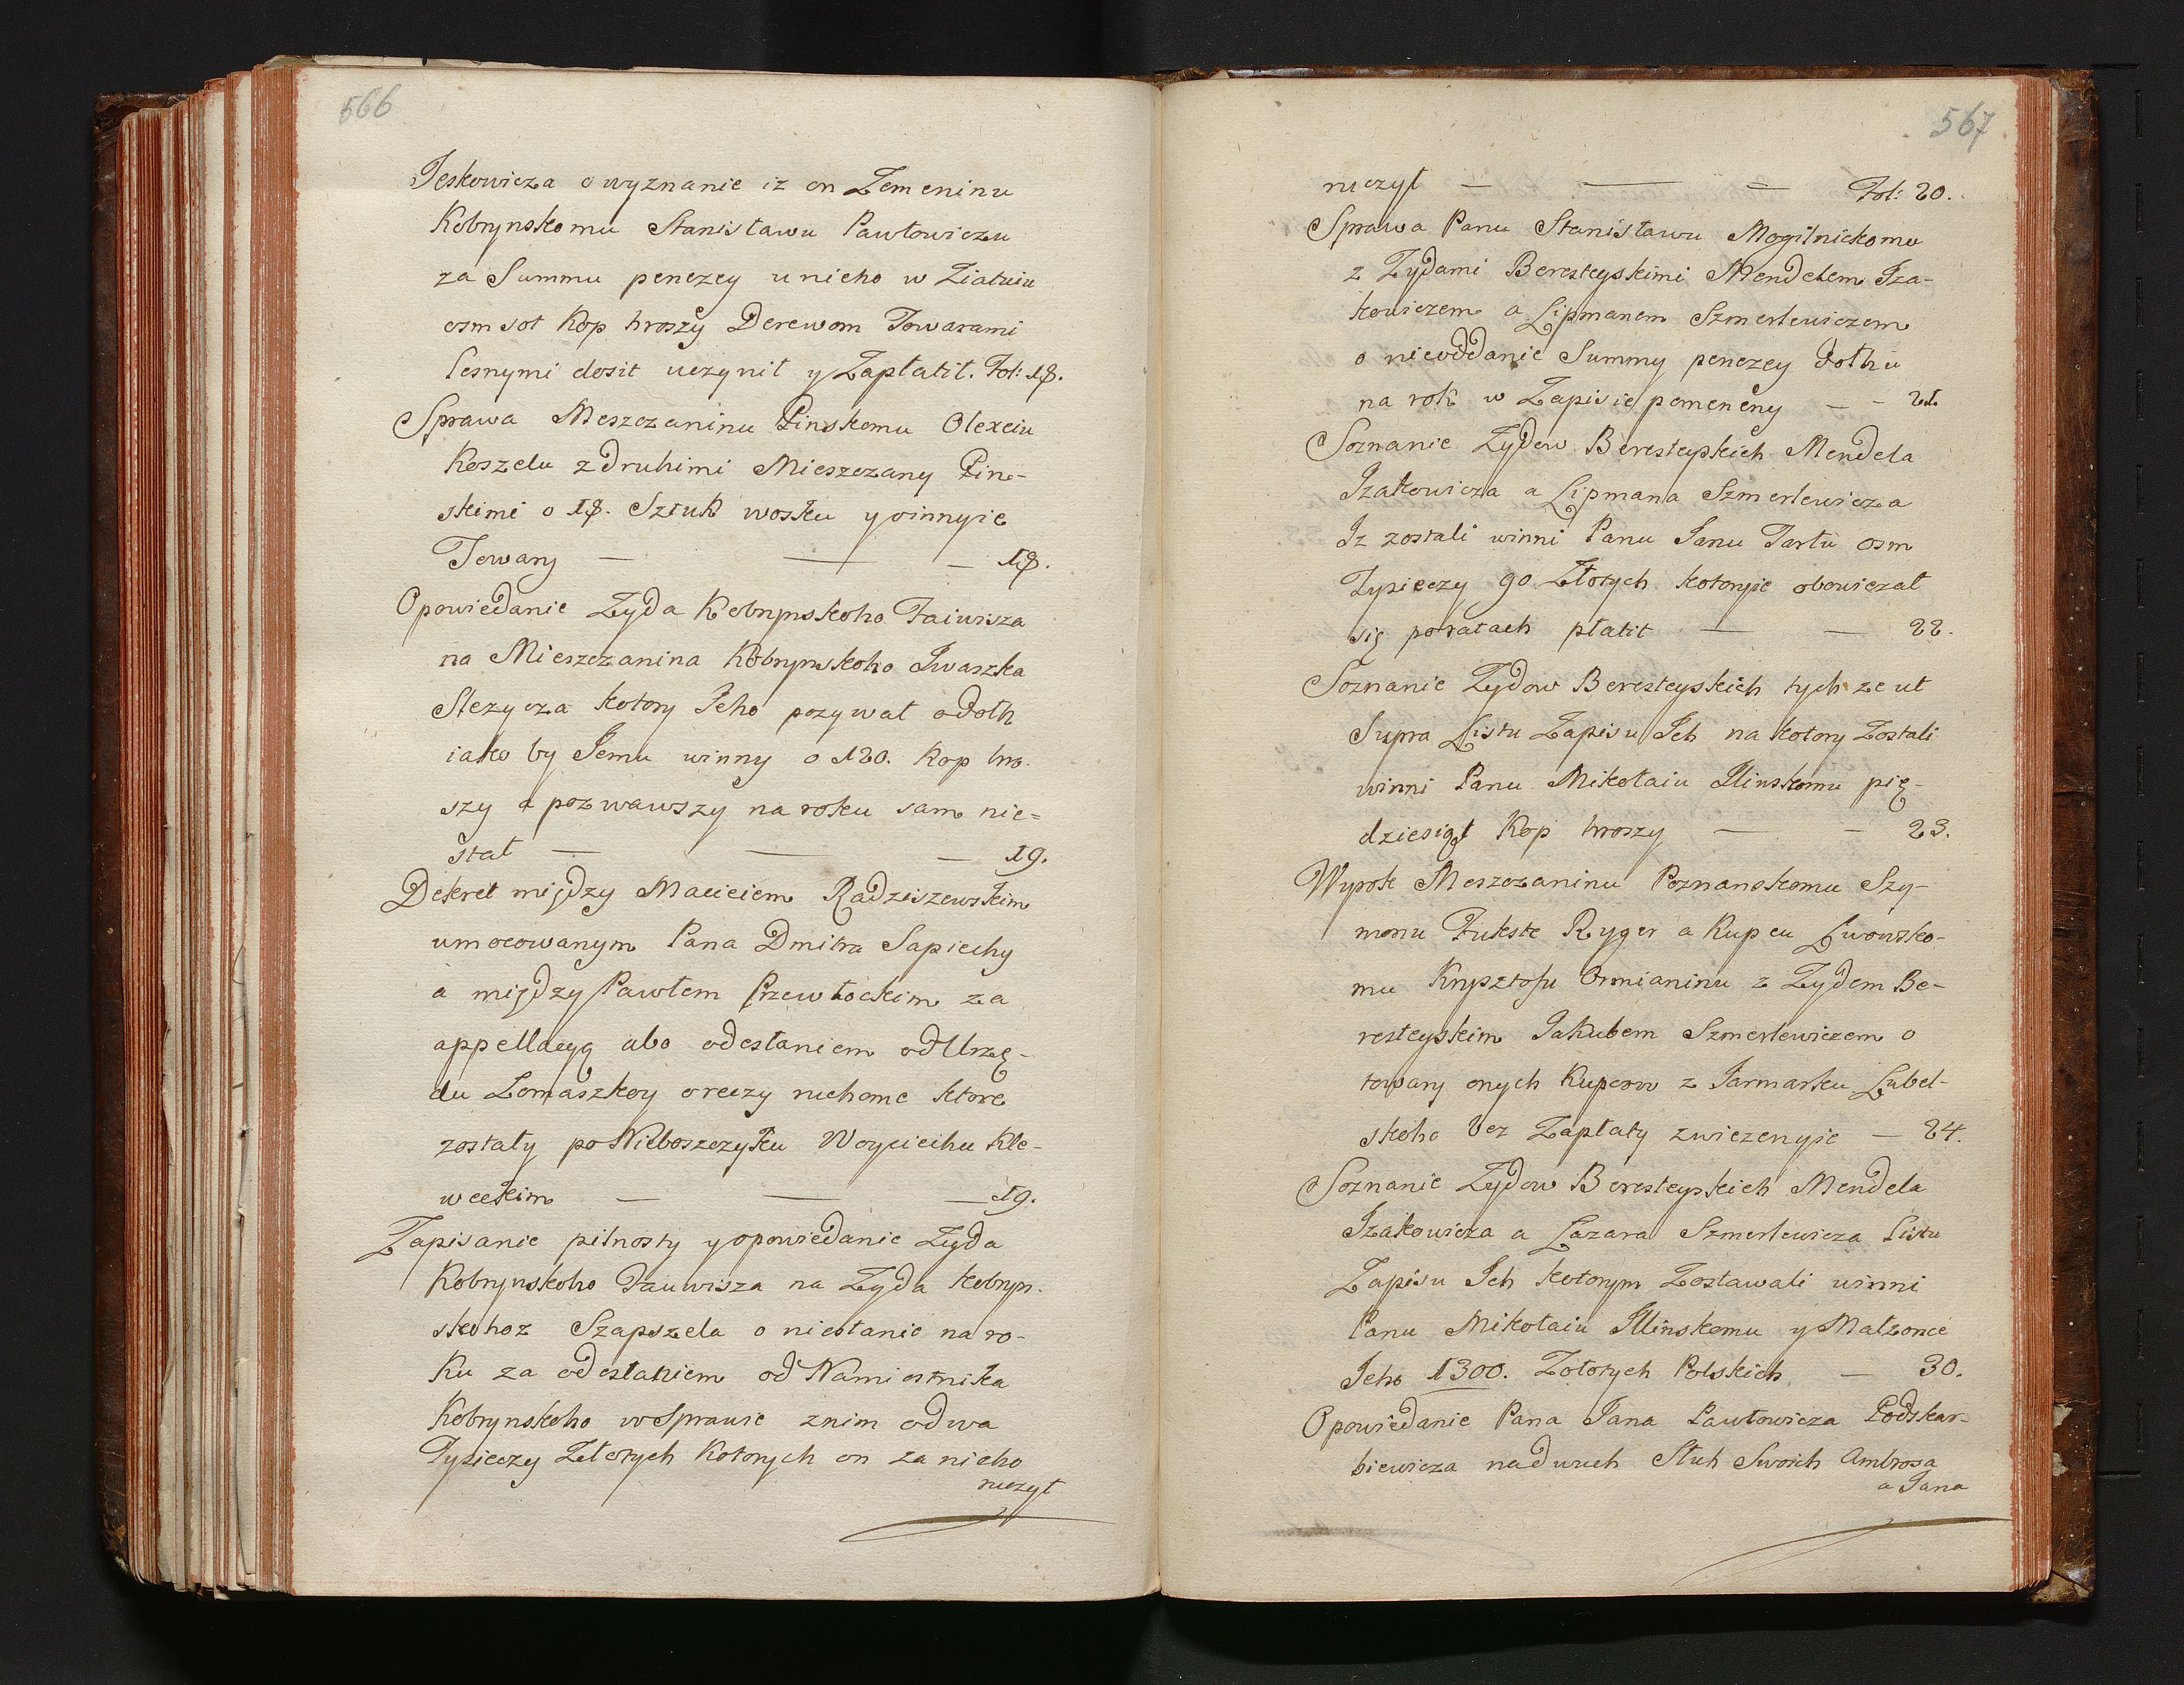 566
Jeskowicza o wyznanie iz on Zemeninu
Kobrynskomu Stanisławu Pawłowiczu
za Summu penezey u nieho w Ziatuiu
osm sot Kop hroszy Derewom Towarami
lesnymi dosit uczynił y Zapłatił. Fol: 18.
Sprawa Meszczaninu Pinskomu Olexeiu
Koszelu z druhimi Mieszczany Pin-
skimi o 18. Sztuk wosku y innyie
Towary — — — 18.
Opowiedanie Zyda Kobrynskoho Faiwisza
na Mieszczanina Kobrynskoho Iwaszka
Stezycza kotory Jeho pozywał o dołh
iako by Jemu winny o 120. Kop hro-
szy a pozwawszy na roku sam nie=
stał — — — 19.
Dekret między Macieiem Radziszewskim
umocowanym Pana Dmitra Sapiehy
a między Pawłem Przewłockim za
appellacyą abo odesłaniem od Urzę-
du Łomaszkoy o rzeczy ruchome ktore
zostały po Nieboszczyku Woyciechu Kle-
weckim — — — 19.
Zapisanie pilnosty y opowiedanie Zyda
Kobrynskoho Fauwisza na Zyda kobryn-
skohoz Szapszela o niestanie na ro-
ku za odesłaniem od Namiestnika
Kobrynskoho w Sprawie z nim o dwa
Tysieczy Złotych Kotorych on za nieho
ruczył
567
ruczył — — — Fol: 20.
Sprawa Panu Stanisławu Mogilnickomu
z Zydami Beresteyskimi Mendelem Iza-
kowiczem a Lipmanem Szmerlewiczem
o nieoddanie Summy penezey dołhu
na rok w Zapisie pomeneny — - 21
Soznanie Zydow Beresteyskich Mendela
Izakowicza a Lipmana Szmerlewicza
Iz zostali winni Panu Janu Tartu osm
Tysieczy 90 Złotych kotoryie obowiezał
się po ratach płatit — — 22.
Soznanie Zydow Beresteyskich tych ze ut
Supra Listu Zapisu Ich na kotory Zostali
winni Panu Mikołaiu Ilinskomu pię-
dziesiąt Kop hroszy — — 23.
Wyrok Meszczaninu Poznanskomu Szy-
monu Fukste Ryger a Kupcu Lwowsko-
mu Krysztofu Ormianinu z Zydem Be-
resteyskim Jakubem Szmerlewiczem o
towary onych Kupcow z Jarmarku Lubel-
skoho bez Zapłaty zwiezenyie — 24.
Soznanie Zydow Beresteyskich Mendela
Izakowicza a Łazara Szmerlewicza Listu
Zapisu Ich kotorym Zostawali winni
Panu Mikołaiu Ilinskomu y Małzonce
Jeho 1300. Zołotych Polskich — 30.
Opowiedanie Pana Jana Pawłowicza Podskar-
biewicza na dwuch Słuh Swoich Ambrosa
a Jana